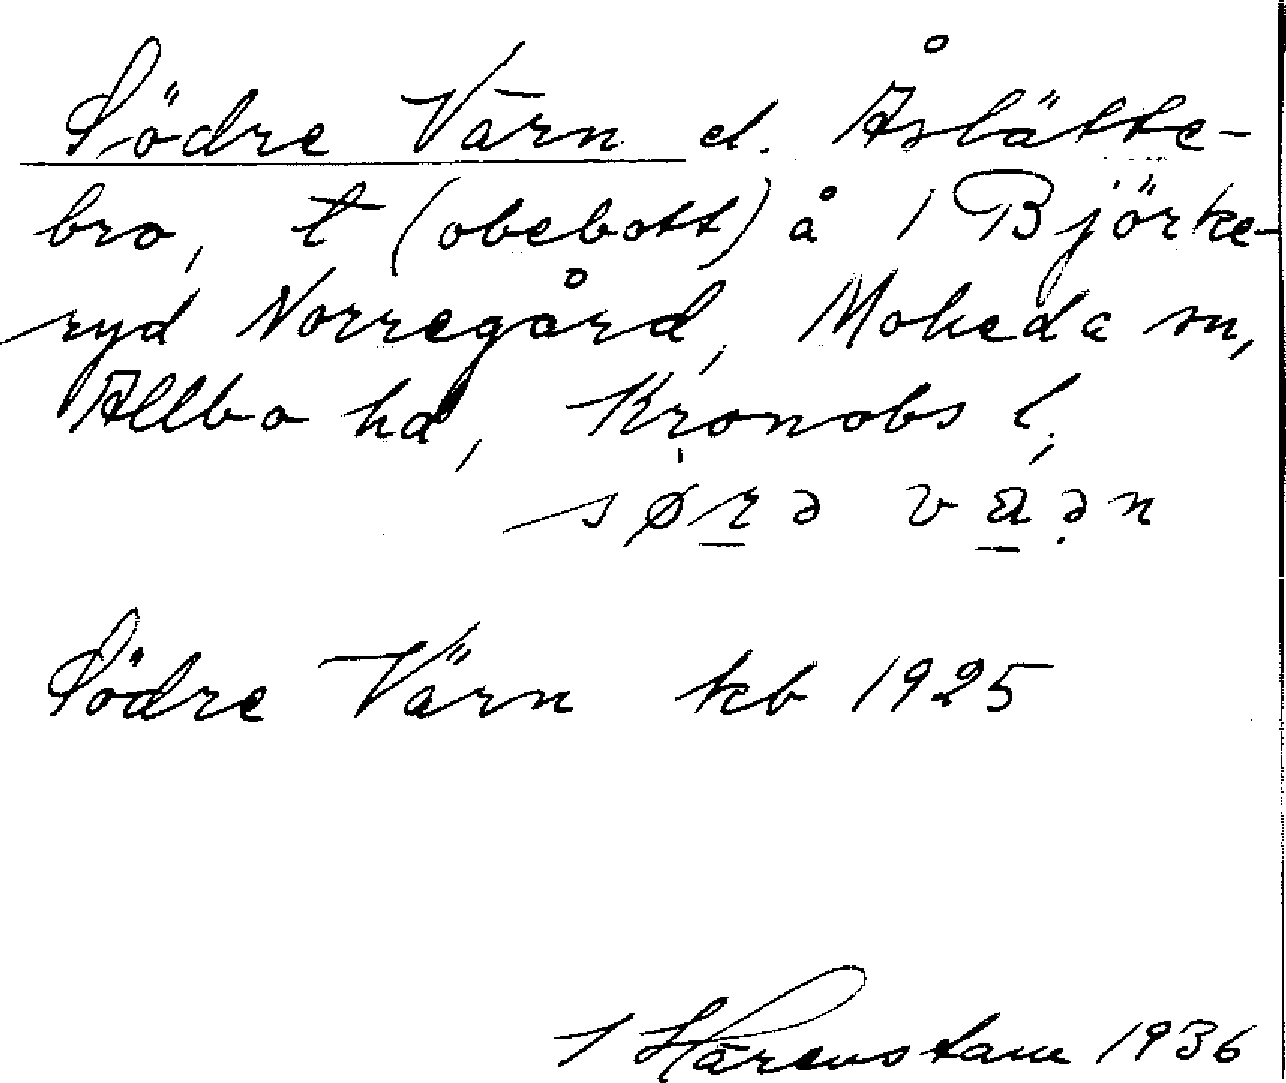 Södre Värn el. Åslätte-
bro, t (obebott) å 1 Björke-
ryd Norregård, Moheda sn,
Allbo hd, Kronobs l.
Södre Värn kb 1925
Härenstam 1936